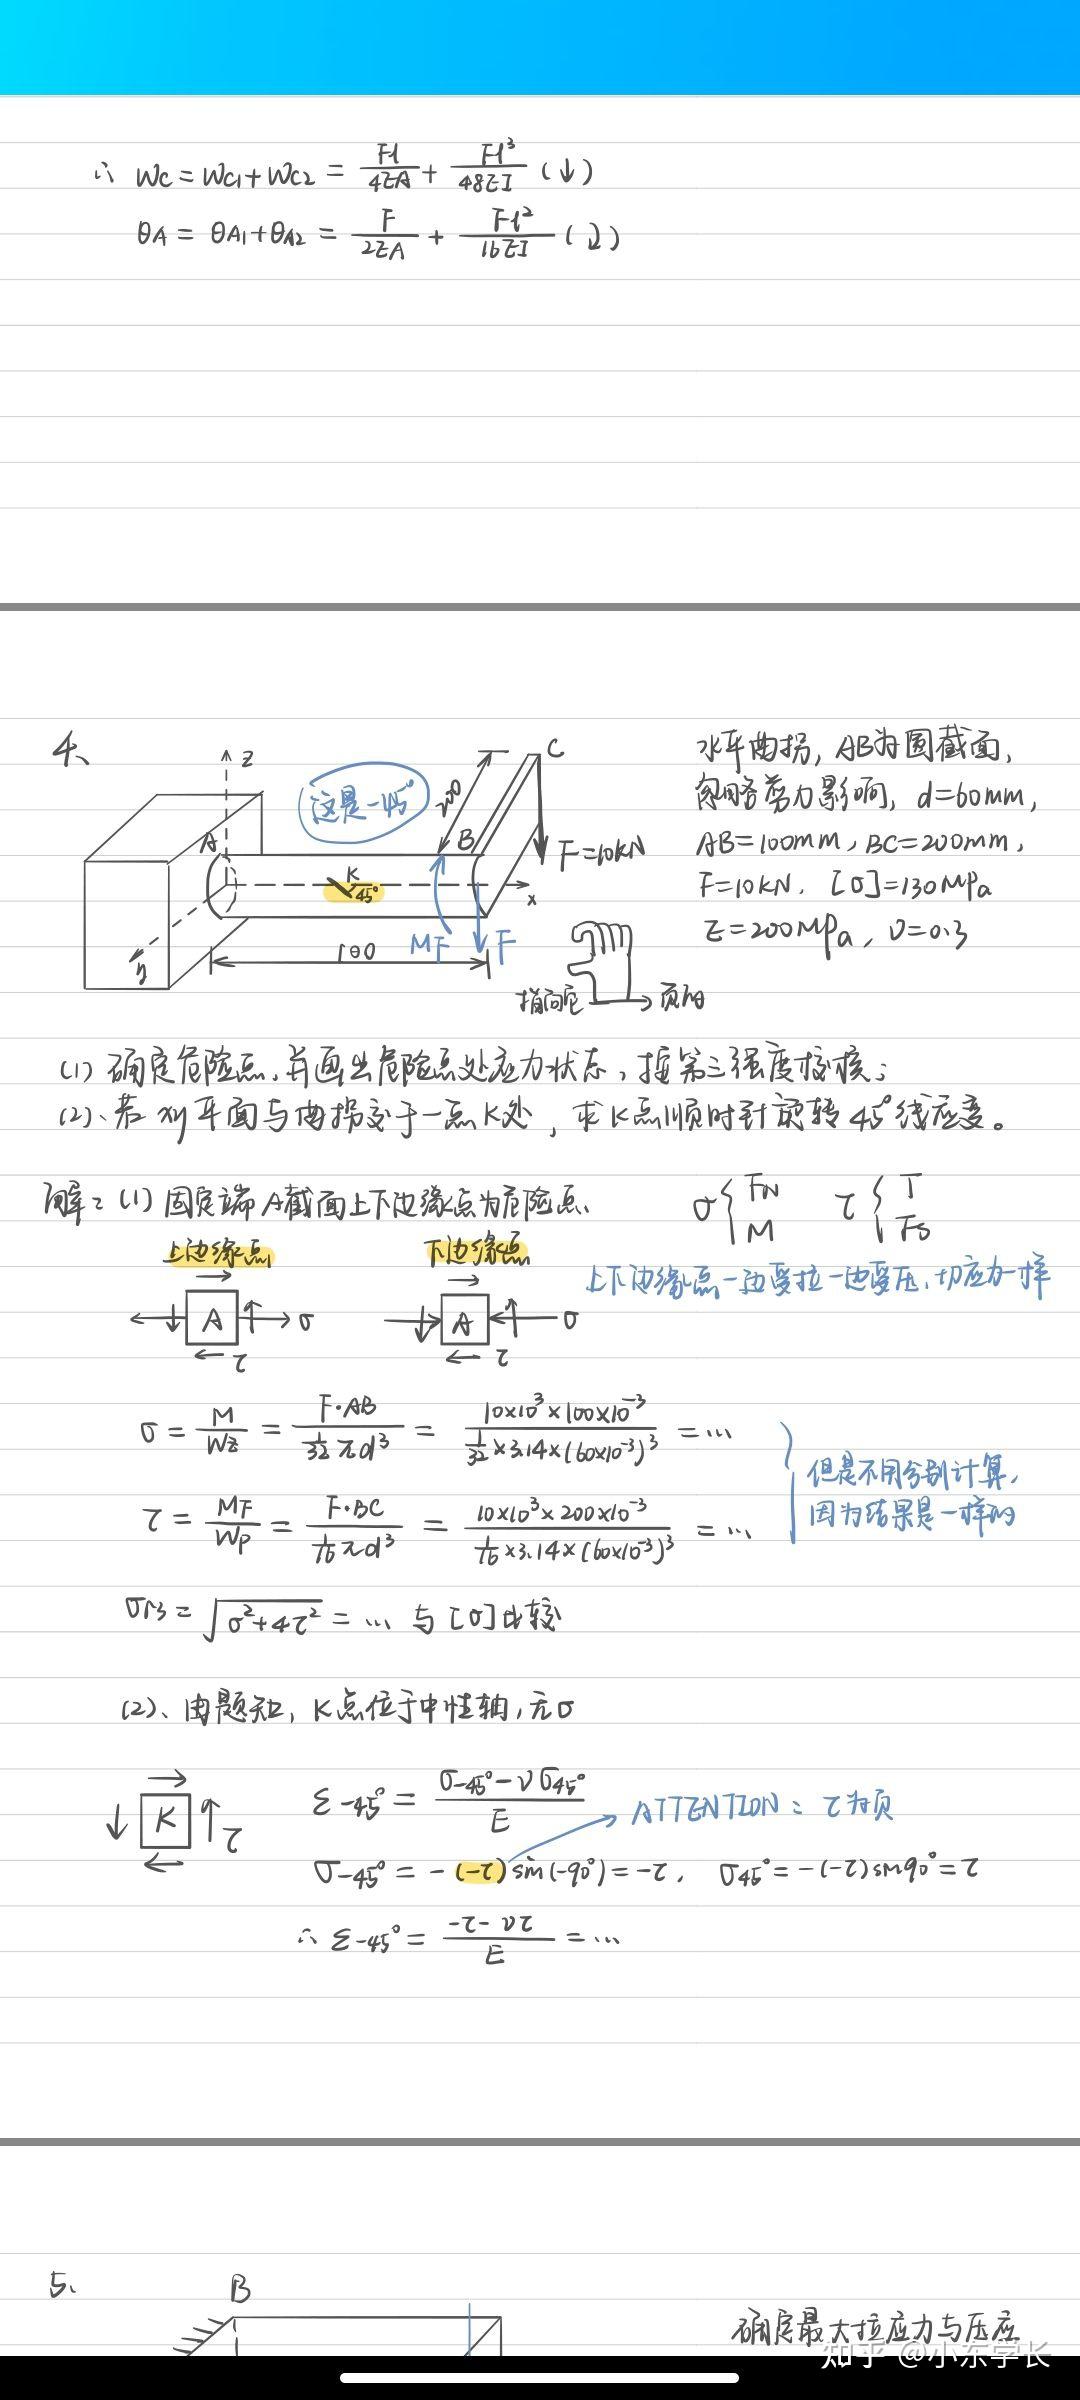 ∴ Wc = Wc1 + Wc2 = Fl/4EA + Fl³/48EI (↓)
θA = θA1 + θA2 = F/2EA + Fl²/16EI (↓)
4、
z
C
这是-45°
200
A
B
K
45°
x
F=10kN
y
100
MF
F
指向它
页内
水平曲拐，AB为圆截面，
忽略剪力影响，d=60mm，
AB=100mm，BC=200mm，
F=10kN，[σ]=130MPa
E=200MPa，υ=0.3
(1) 确定危险点，并画出危险点处应力状态，按第三强度校核；
(2)、若xy平面与曲拐交于一点K处，求K点顺时针旋转45°线应变。
解：(1) 固定端A截面上下边缘点为危险点.
σ { FN M
τ { T Fs
上边缘点
下边缘点
上下边缘点一边受拉一边受压，切应力一样
A σ τ
A σ τ
σ = M/Wz = F·AB / (1/32 πd³) = 10×10³×100×10⁻³ / (1/32 ×3.14×(60×10⁻³)³) = …
但是不用分别计算，
因为结果是一样的
τ = MF/Wp = F·BC / (1/16 πd³) = 10×10³×200×10⁻³ / (1/16 ×3.14×(60×10⁻³)³) = …
σr3 = √(σ²+4τ²) = … 与[σ]比较
(2)、由题知，K点位于中性轴，无σ
K τ
ε-45° = (σ-45° - νσ45°)/E
ATTENTION：τ为负
σ-45° = -(-τ)sin(-90°) = -τ， σ45° = -(-τ)sin90° = τ
∴ ε-45° = (-τ-ντ)/E = …
5、
B
确定最大拉应力与压应
知乎 @小东学长